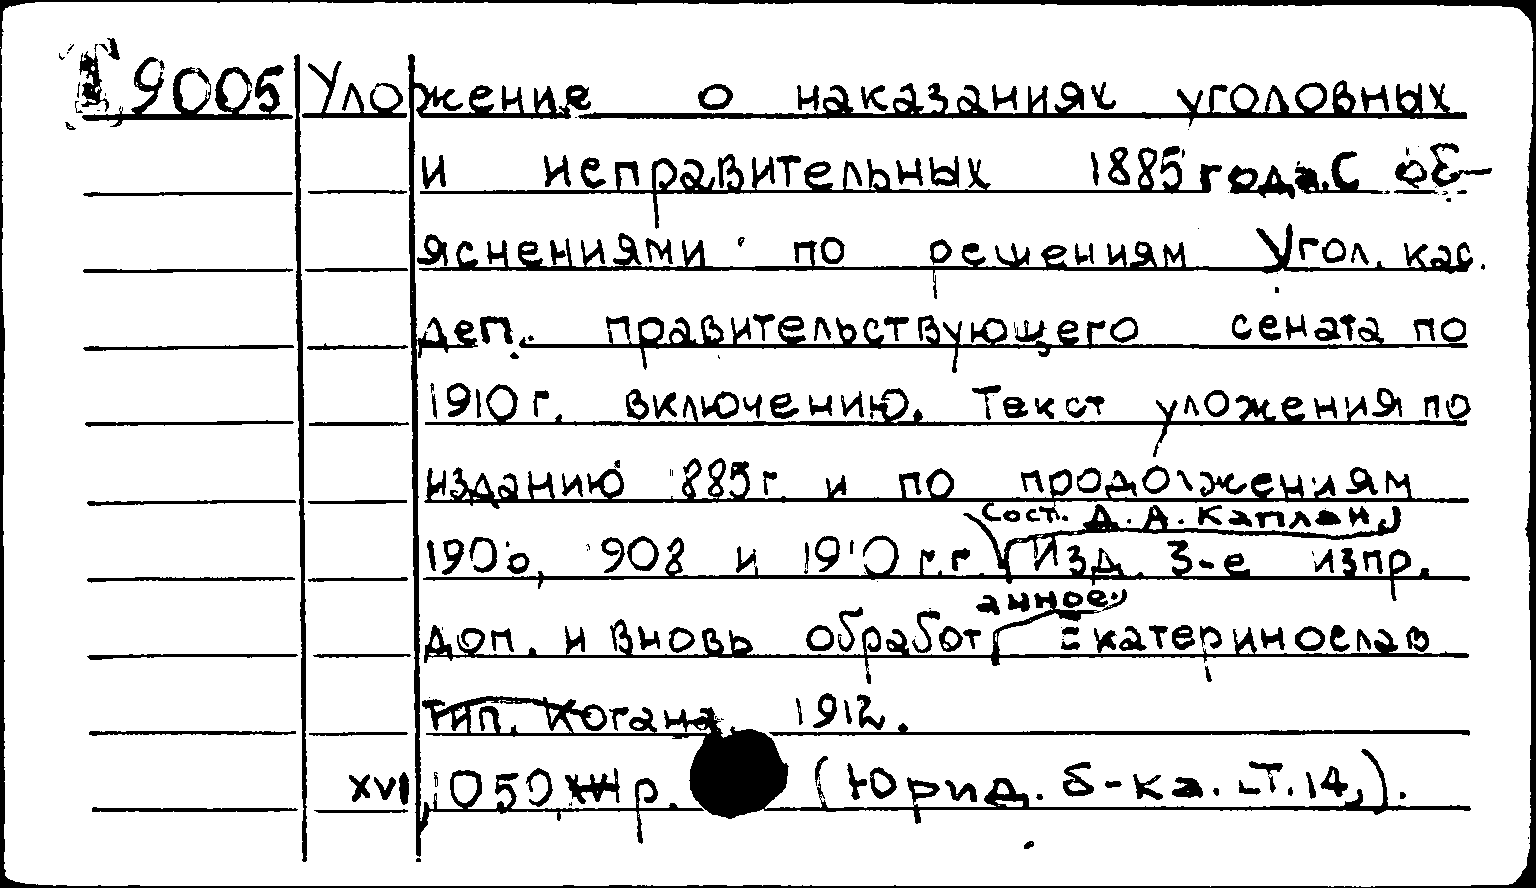 Т 9005 Уложение о наказаниях уголовных
и исправительных 1885 года. С об-
яснениями по решениям Угол. кас.
деп. правительствующего сената по
1910 г. включению. Текст уложения по
изданию 885 г. и по продолжениям
Сост. Д. А. Каплан,
1906, 908 и 1910 г.г. Изд. 3-е испр.
анное.
доп. и вновь обработ Екатеринослав
тип. Когана. 1912.
XVI, 1050 р. (Юрид. б-ка. Т. 14,).